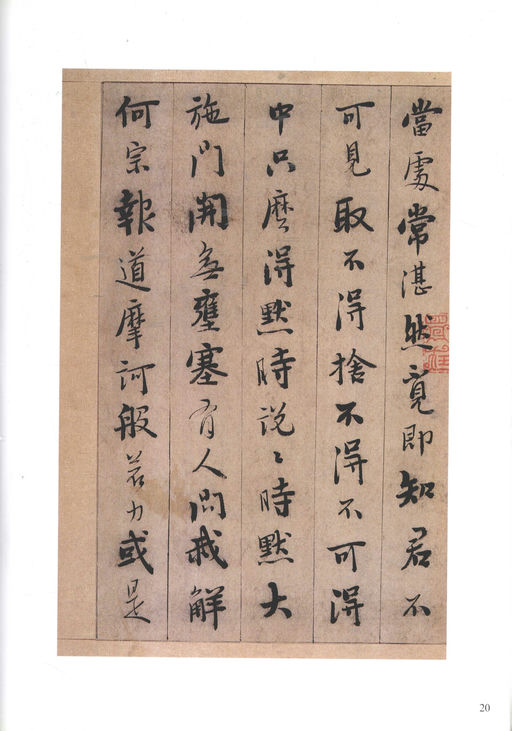 當處常湛然覓即知君不
可見取不得捨不得不可得
中只麼得默時說〻時默大
施門開無壅塞有人問我解
何宗報道摩訶般若力或是
20